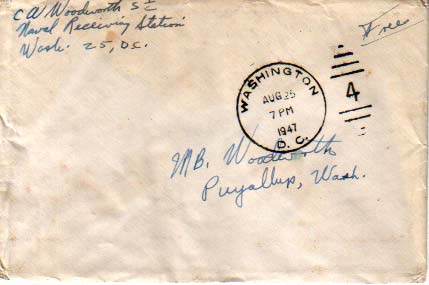 CA Woodworth S 1/C
Naval Receiving Station
Wash. 25, D.C.
Free
WASHINGTON
AUG 25
7 PM
1947
D. C.
4
MB. Woodworth
Puyallup, Wash.